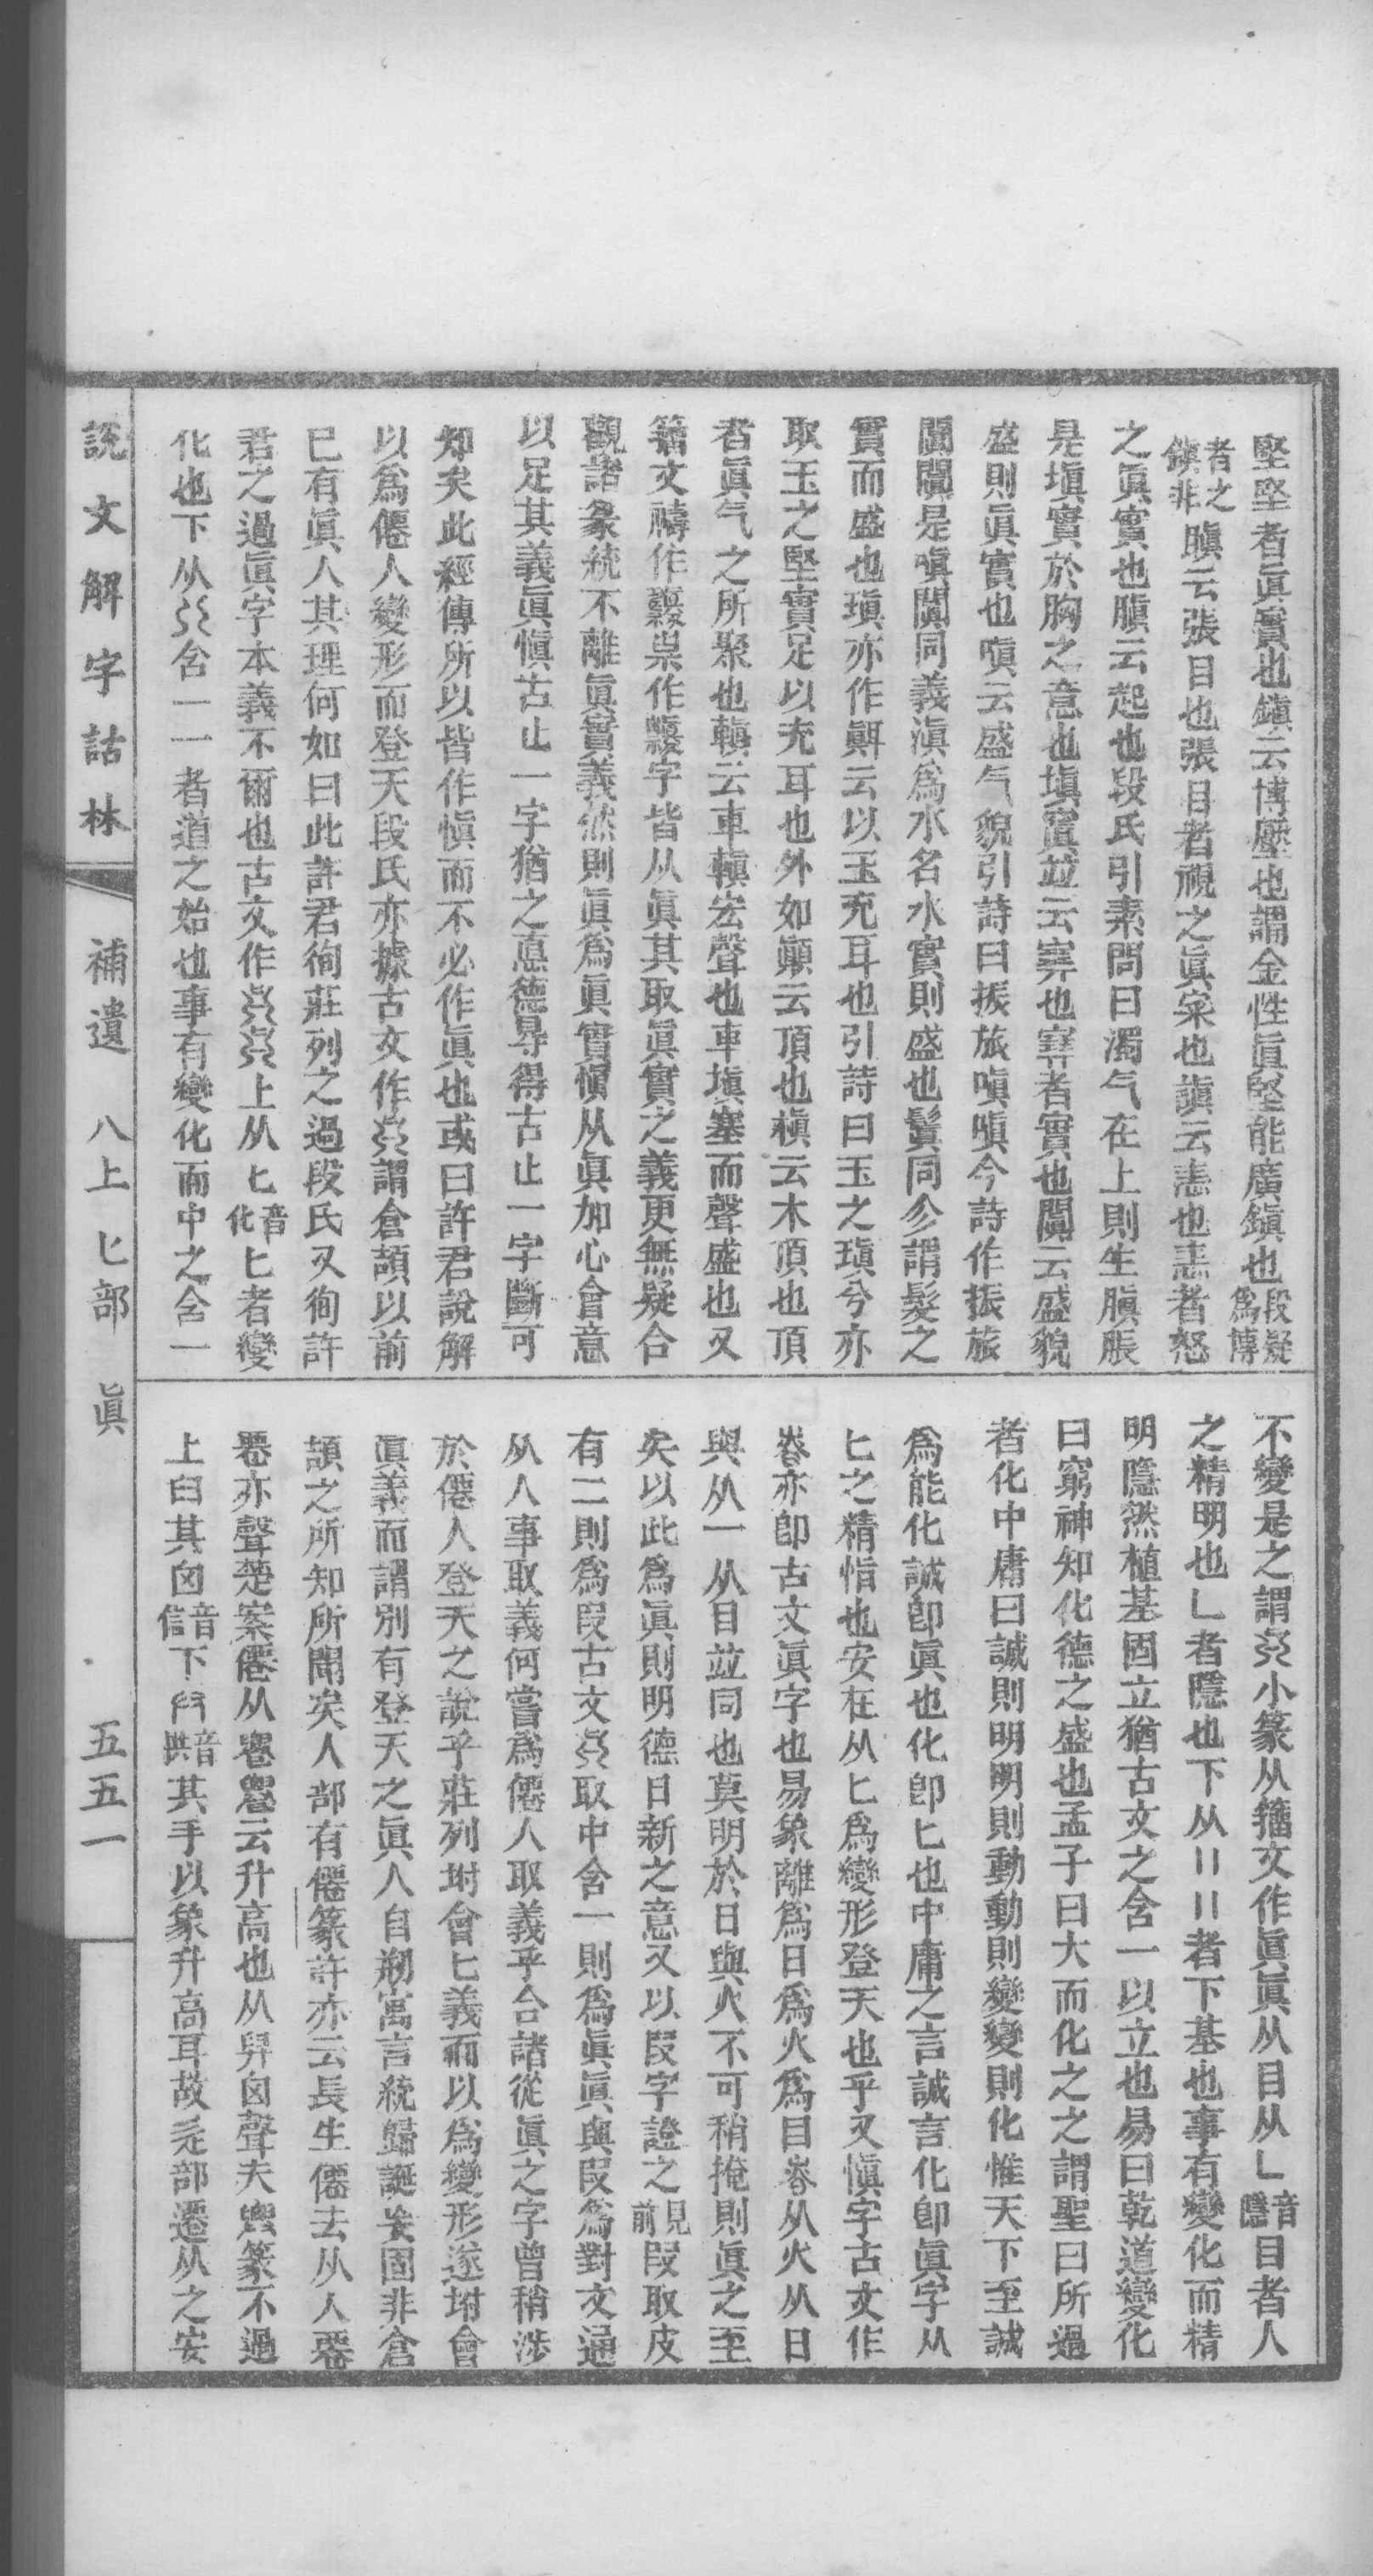 堅堅者眞實也鎭云博壓也謂金性眞堅能廣鎭也段疑爲博
者之鎭非瞋云張目也張目者視之眞寀也謓云恚也恚者怒
之眞實也䐜云起也段氏引素問曰濁气在上則生䐜脹
是塡實於胸之意也塡窴竝云窒也窒者實也闐云盛貌
盛則眞實也嗔云盛气貌引詩曰振旅嗔嗔今詩作振旅
闐闐是嗔闐同義滇爲水名水實則盛也鬒同㐱謂髮之
實而盛也瑱亦作䪴云以玉充耳也引詩曰玉之瑱兮亦
取玉之堅實足以充耳也外如顚云頂也槇云木頂也頂
者眞气之所聚也轒云車轒宏聲也車塡塞而聲盛也又
籒文禱作祟作字皆从眞其取眞實之義更無疑合
觀諸篆統不離眞實義然則眞爲眞實愼从眞加心會意
以足其義眞愼古止一字猶之悳德㝵得古止一字斷可
知矣此經傳所以皆作愼而不必作眞也或曰許君說解
以爲僊人變形而登天段氏亦據古文作謂倉頡以前
已有眞人其理何如曰此許君徇莊列之過段氏又徇許
君之過眞字本義不爾也古文作上从匕音化匕者變
化也下从含一一者道之始也事有變化而中之含一
不變是之謂小篆从籒文作眞眞从目从乚音隱目者人
之精明也乚者隱也下从〢〢者下基也事有變化而精
明隱然植基固立猶古文之含一以立也易曰乾道變化
曰窮神知化德之盛也孟子曰大而化之之謂聖曰所過
者化中庸曰誠則明明則動動則變變則化惟天下至誠
爲能化誠卽眞也化卽匕也中庸之言誠言化卽眞字从
匕之精恉也安在从匕爲變形登天也乎又愼字古文作
昚亦卽古文眞字也易象離爲日爲火爲目昚从火从日
與从一从目竝同也莫明於日與火不可稍掩則眞之至
矣以此爲眞則明德日新之意又以叚字證之見前叚取皮
有二則爲叚古文取中含一則爲眞眞與叚爲對文通
从人事取義何嘗爲僊人取義乎合諸從眞之字曾稍涉
於僊人登天之說乎莊列坿會匕義而以爲變形遂坿會
眞義而謂別有登天之眞人自剏寓言統歸誕妄固非倉
頡之所知所聞矣人部有僊篆許亦云長生僊去从人䙴
䙴亦聲楚案僊从䙴䙴云升高也从舁囟聲夫䙴篆不過
上臼其囟音信下廾音拱其手以象升高耳故辵部遷从之安
說文解字詁林
補遺 八上 匕部 眞
五五一